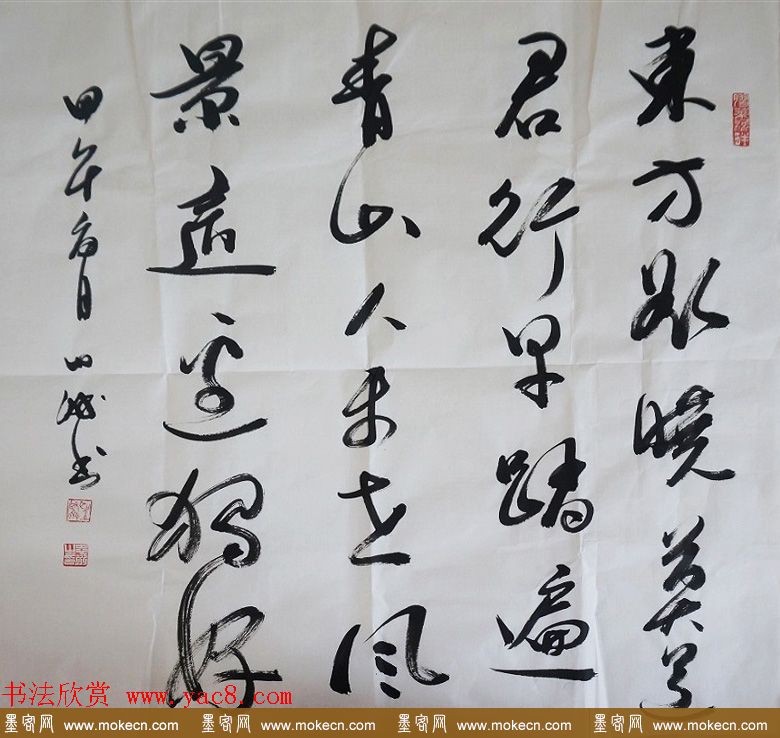 東方欲曉莫道
君行早踏遍
青山人未老风
景這边獨好
甲午 月 书
书法欣赏 www.yac8.com
墨客网 www.mokecn.com 墨客网 www.mokecn.com 墨客网 www.mokecn.com 墨客网 www.mokecn.com